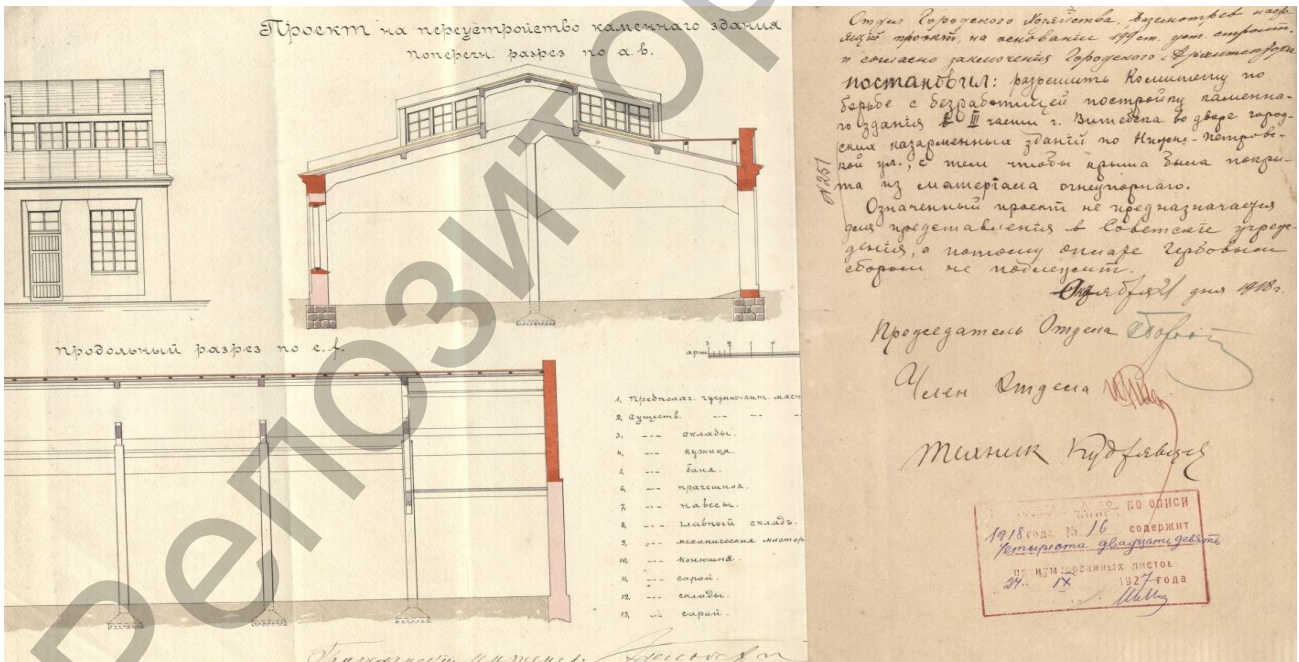 Проект на переустройство каменнаго здания
поперечн. разрез по а.в.
продольный разрез по е.f.
арш
1. Предполаг. чугунно-лит. маст
2. Существ. --- --- ---
3. --- склады.
4. --- кузница.
5. --- баня.
6. --- прачешная.
7. --- навесы.
8. --- главный складъ.
9. --- механическая мастер
10. --- конюшня.
11. --- сарай.
12. --- склады.
13. --- сарай.
Гражданский инженер.
Отдел Городского Хозяйства, разсмотрев насто-
ящий проект, на основании ст. уст. строит.
и согласно заключения Городского Архитектора
постановил: разрешить Комитету по
борьбе с безработицей постройку каменна-
го зданія в III части г. Витебска во дворе город-
ских казарменных зданій по Нижне-Петровс-
кой ул., с тем чтобы крыша была покры-
та из матеріала огнеупорнаго.
Означенный проект не предназначается
для представленія в Советскіе учреж-
денія, а потому оплате Гербовым
сбором не подлежит.
№251
21 дня 1918 г.
Председатель Отдела
Член Отдела
Техник Кудрявцев
по описи
1918 года № 16 содержит
Четыреста двадцать девять
пронумерованных листов
24 IX 1927 года
РЕПОЗИТОР